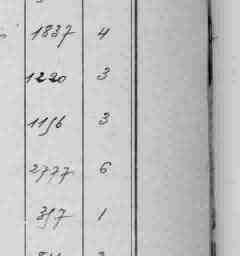 1837 4
1220 3
1196 3
2777 6
397 1